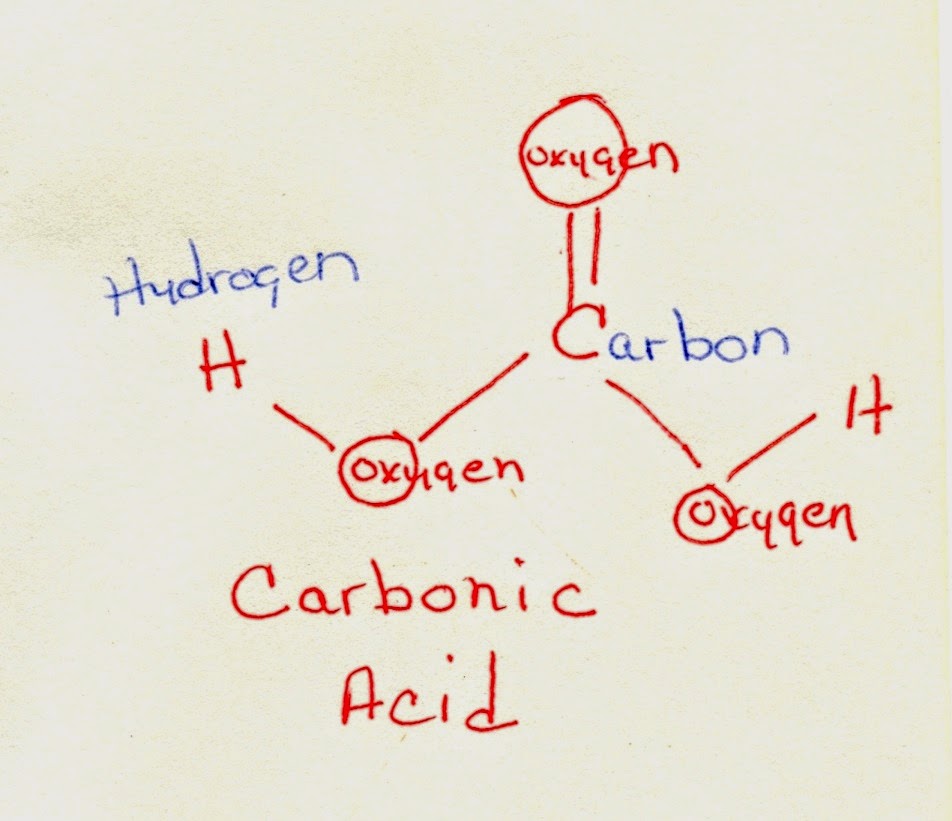 oxygen
Hydrogen
Carbon
H
H
oxygen
oxygen
Carbonic
Acid